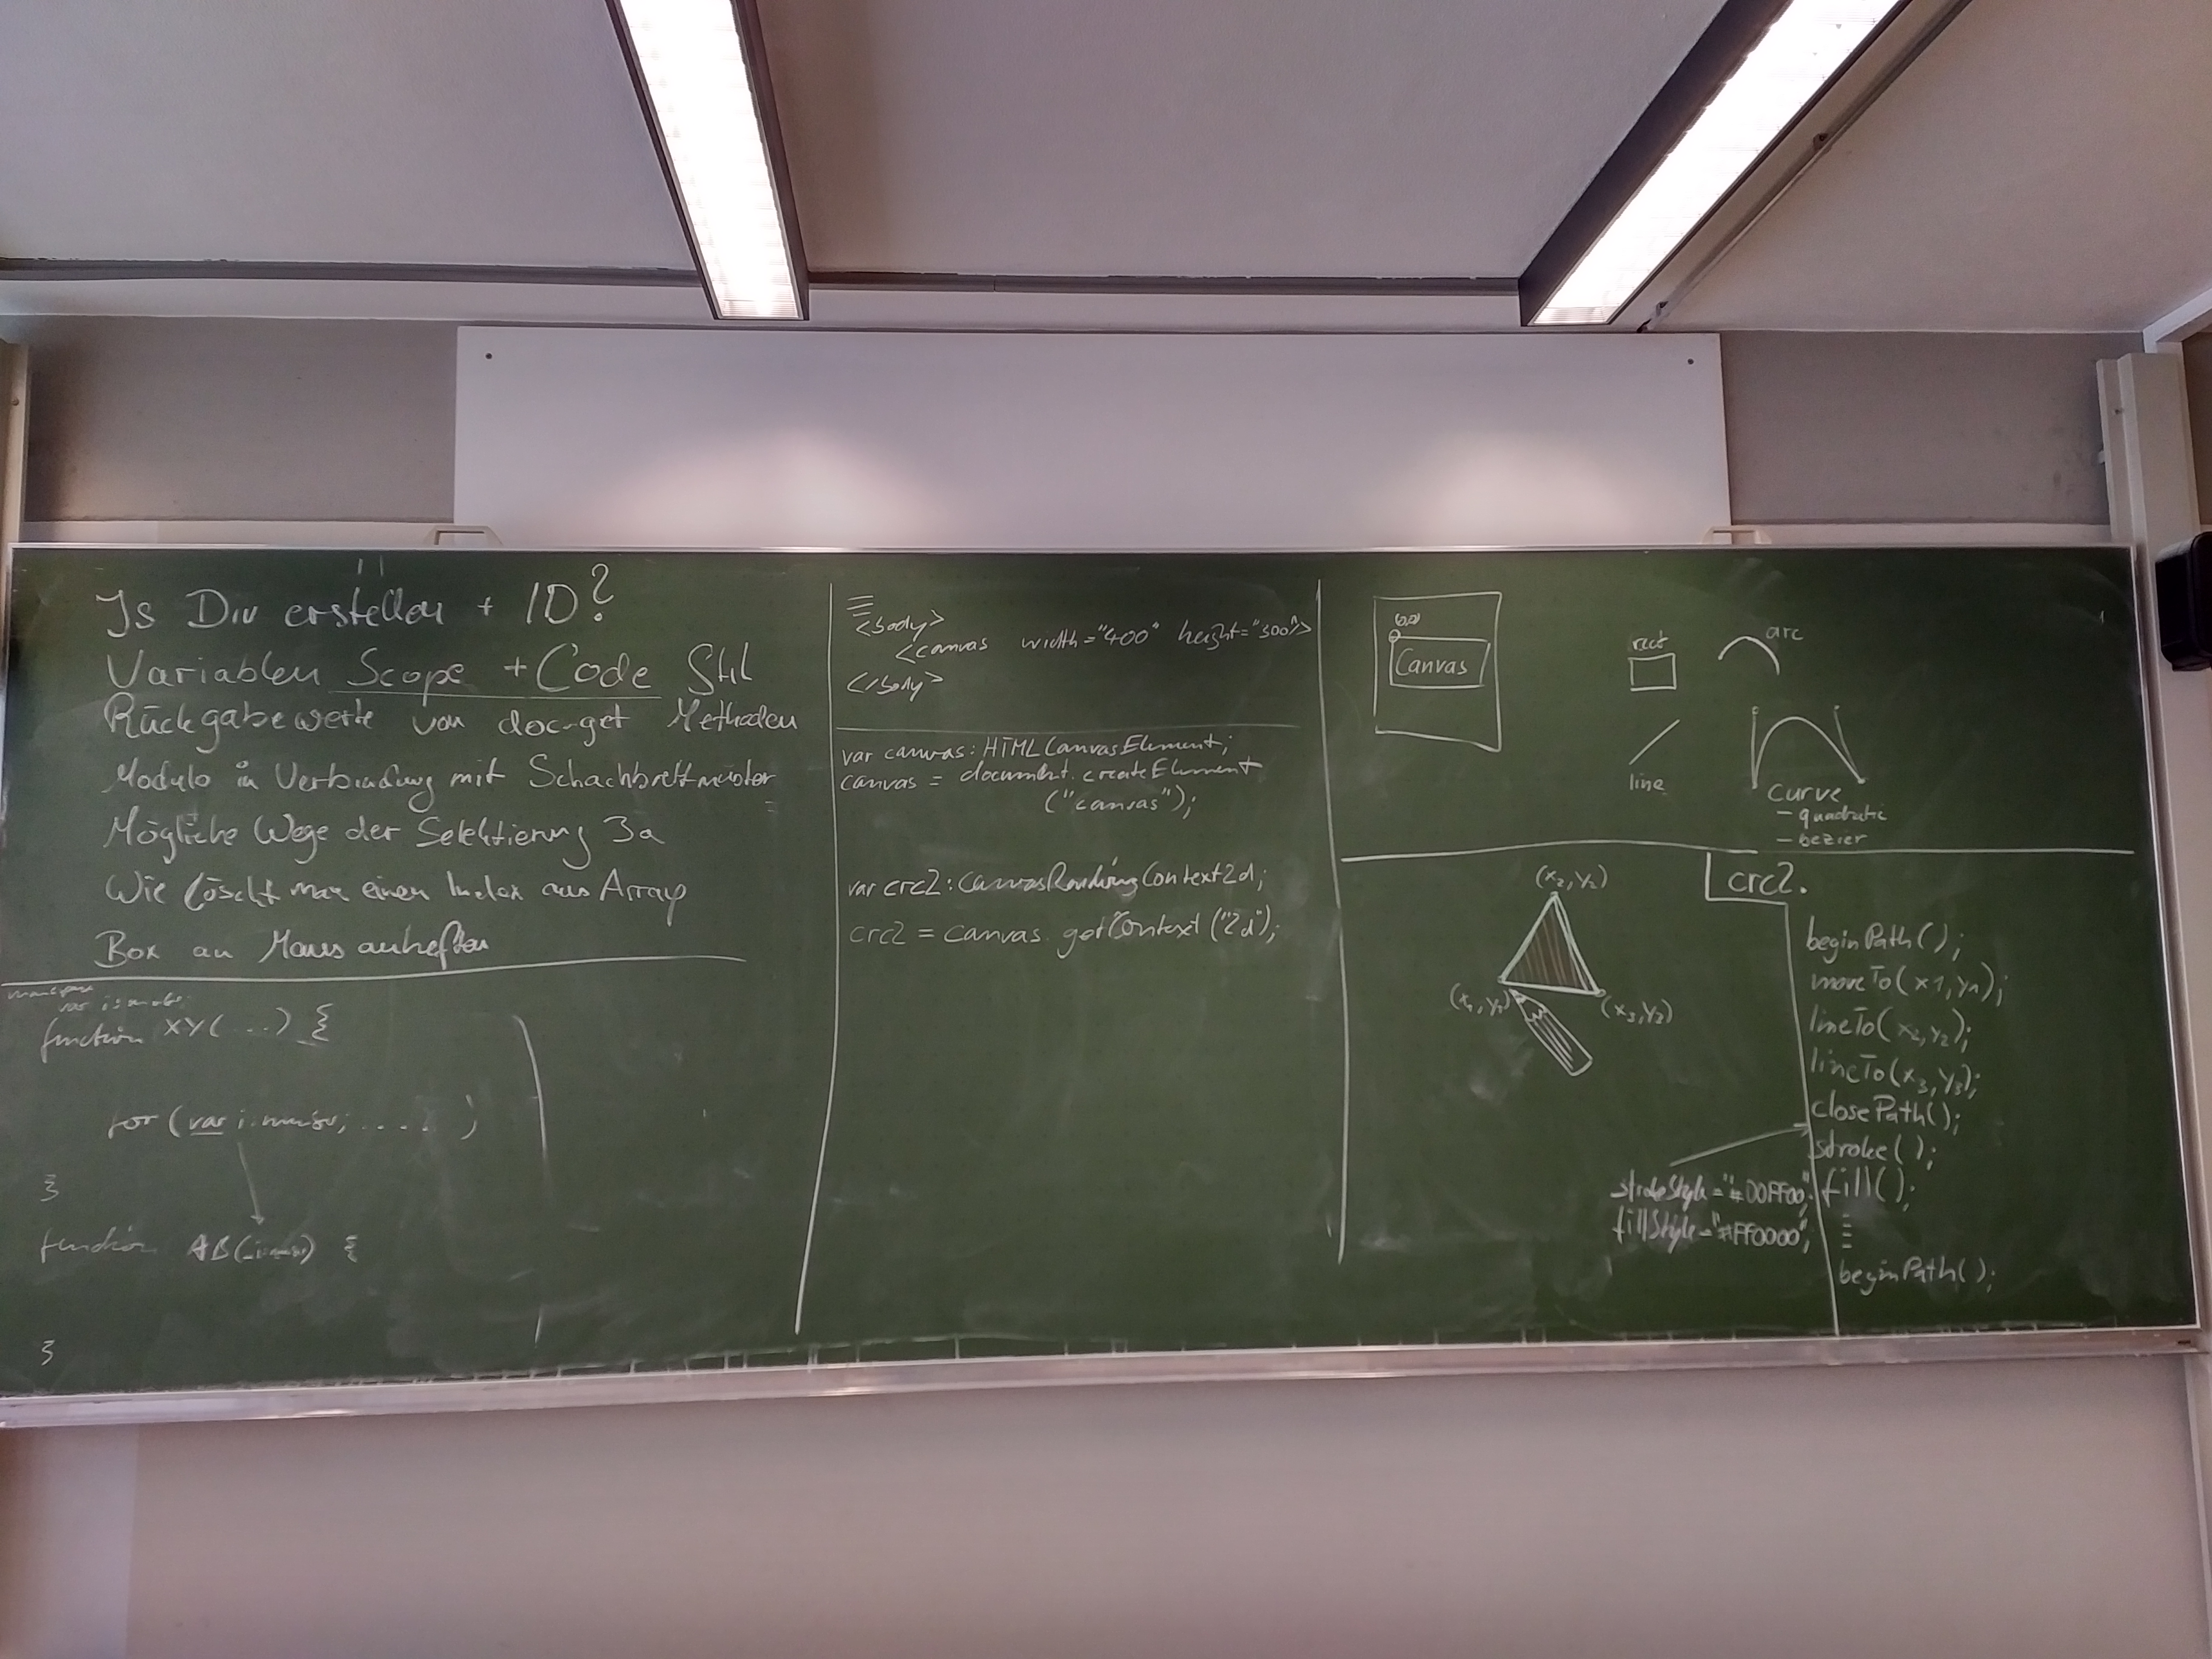 Js Div erstellen + ID?
Variablen Scope + Code Stil
Rückgabewerte von doc-get Methoden
Modulo in Verbindung mit Schachbrettmuster
Mögliche Wege der Selektierung 3a
Wie löscht man einen Index aus Array
Box an Maus anheften
function XY(...) {
for (var i:number; .... )
}
function AB(_i:number) {
}
<body>
<canvas width="400" height="300"/>
</body>
var canvas: HTMLCanvasElement;
canvas = document.createElement
("canvas");
var crc2: CanvasRenderingContext2d;
crc2 = canvas.getContext("2d");
0,0
Canvas
rect
arc
line
curve
- quadratic
- bezier
(x2, y2)
(x1, y1)
(x3, y3)
crc2.
beginPath();
moveTo(x1, y1);
lineTo(x2, y2);
lineTo(x3, y3);
closePath();
stroke();
fill();
strokeStyle="#00FF00";
fillStyle="#FF0000";
beginPath();